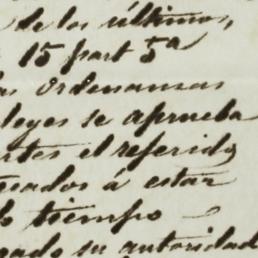 de los últimos,
15 part 5ª
as ordenanzas
leyes se aprueba
el referido
á estar
tiempo
su autoridad